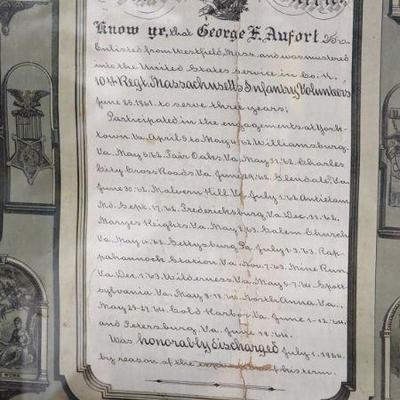 Know ye, that George F. Aufort
Enlisted from Westfield, Mass. and was mustered
into the United States service in Co.
10th Regt. Massachusetts Infantry Volunteers
June 25, 1861, to serve three years;
Participated in the engagements at York-
town Va. April 5 to May 4, '62. Williamsburg,
Va. May 5, '62. Fair Oaks Va. May 31, '62. Charles
City Cross Roads Va. June 29, '62. Glendale, Va.
June 30, '62. Malvern Hill, Va. July 1, '62. Antietam
Md. Sept. 17, '62. Fredericksburg Va. Dec. '62.
Maryes Heights, Va. May 3, '63. Salem Church
Va. May 4, '63. Gettysburg Pa. July 1-3, '63. Rap-
pahannock Station, Va. Nov. 7, '63. Mine Run,
Va. Dec. 1, '63. Wilderness, Va. May 5-7, '64. Spott-
sylvania Va. May 8-18, '64. North Anna, Va.
May 23-27, '64. Cold Harbor, Va. June 1-12, '64.
and Petersburg, Va. June 18, '64.
Was honorably discharged July 1, 1864,
by reason of the of his term.